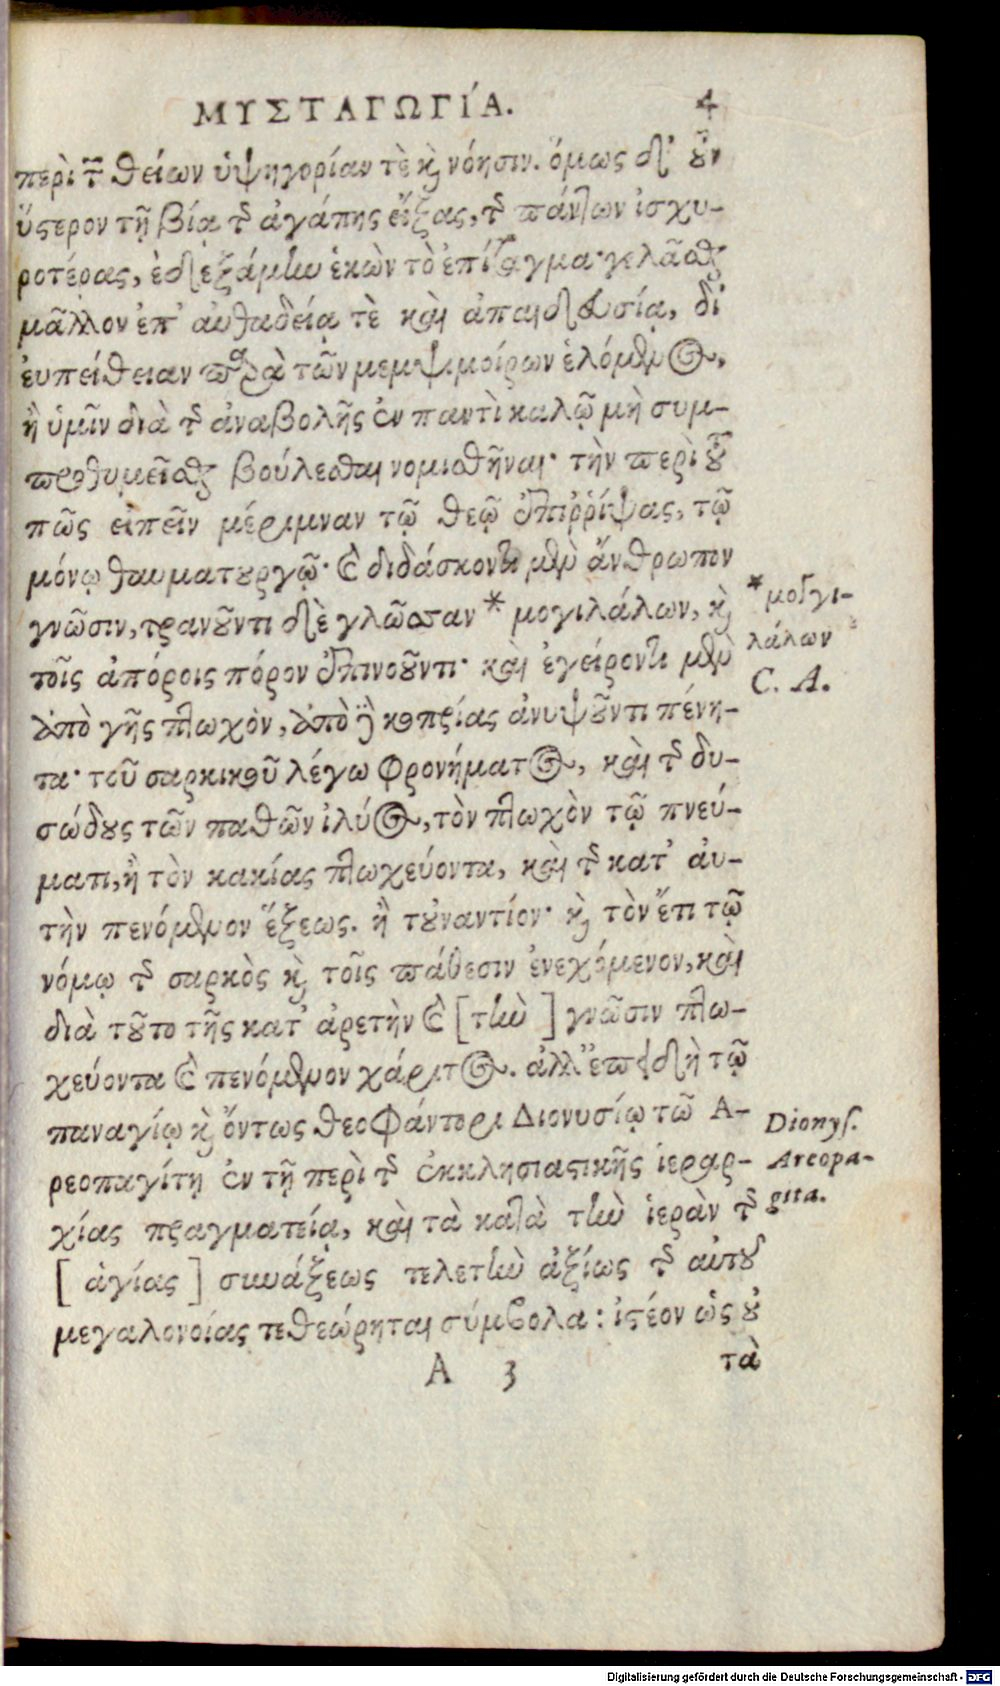 ΜΥΣΤΑΓΩΓΊΑ. 4
περὶ τῶν θείων ὑψηγορίαν τὲ καὶ νόησιν. ὅμως δ' οὖν
ὕστερον τῇ βίᾳ τῆς ἀγάπης εἴξας, τῆς πάντων ἰσχυ-
ροτέρας, ἐδεξάμην ἑκὼν τὸ ἐπίταγμα· γελᾶσθαι
μᾶλλον ἐπ' αὐθαδείᾳ τὲ καὶ ἀπαιδευσίᾳ, δι'
ἐυπείθειαν παρὰ τῶν μεμψιμοίρων ἑλόμενος,
ἢ ὑμῖν διὰ τῆς ἀναβολῆς ἐν παντὶ καλῷ μὴ συμ-
προθυμεῖσθαι βούλεσθαι νομισθῆναι· τὴν περὶ τοῦ
πῶς ειπεῖν μέριμναν τῷ θεῷ ἐπιῤῥίψας, τῷ
μόνῳ θαυματουργῷ· καὶ διδάσκοντι μὲν ἄνθρωπον
γνῶσιν, τρανοῦντι δὲ γλῶσσαν * μογιλάλων, καὶ
τοῖς ἀπόροις πόρον ἐπινοοῦντι· καὶ ἐγείροντι μὲν
ἀπὸ γῆς πτωχὸν, ἀπὸ δὲ κοπρίας ἀνυψοῦντι πένη-
τα· τοῦ σαρκικοῦ λέγω φρονήματος, καὶ τῆς δυ-
σώδους τῶν παθῶν ἰλύος, τὸν πτωχὸν τῷ πνεύ-
ματι, ἢ τὸν κακίας πτωχεύοντα, καὶ τῆς κατ' ἀυ-
τὴν πενόμενον ἕξεως. ἢ τοὐναντίον· καὶ τὸν ἔτι τῷ
νόμῳ τῆς σαρκὸς καὶ τοῖς πάθεσιν ἐνεχόμενον, καὶ
διὰ τοῦτο τῆς κατ' ἀρετὴν καὶ [τὴν] γνῶσιν πτω-
χεύοντα καὶ πενόμενον χάριτος. ἀλλ' ἐπειδὴ τῷ
παναγίῳ καὶ ὄντως θεοφάντορι Διονυσίῳ τῶ Ἀ-
ρεοπαγίτῃ ἐν τῇ περὶ τῆς ἐκκλησιαστικῆς ἱεραρ-
χίας πραγματείᾳ, καὶ τὰ κατὰ τὴν ἱερὰν τῆς
[ ἁγίας ] συνάξεως τελετὴν ἀξίως τῆς αὐτοῦ
μεγαλονοίας τεθεώρηται σύμβολα: ἰστέον ὡς οὐ
Α 3 τὰ
* μογγι-
λάλων
C. A.
Dionys.
Areopa-
gita.
Digitalisierung gefördert durch die Deutsche Forschungsgemeinschaft - DFG